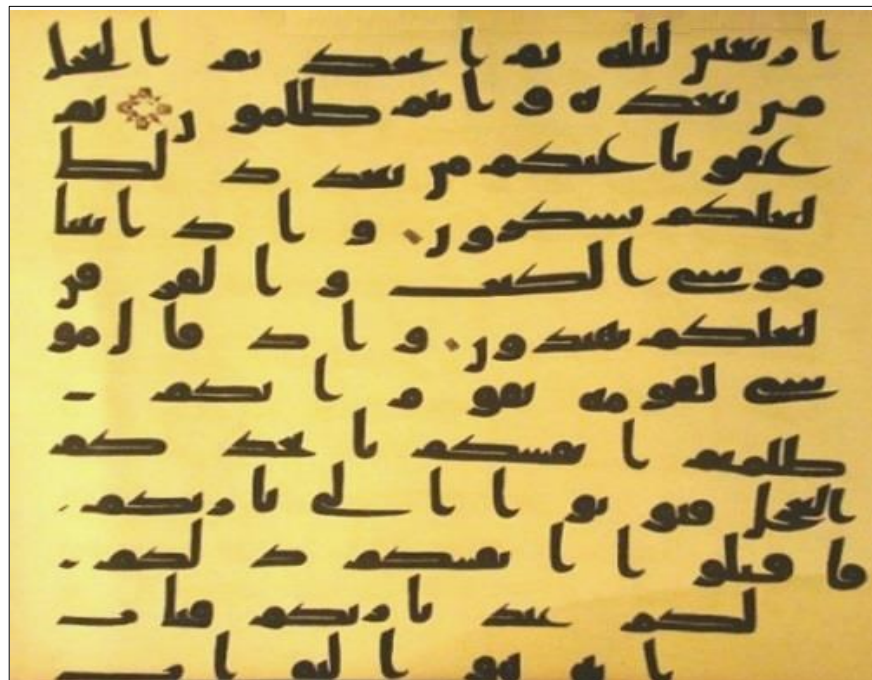 اربعين ليله ثم اتخذتم العجل
من بعده وانتم ظلمون ثم
عفونا عنكم من بعد ذلك
لعلكم تشكرون واذ اتينا
موسى الكتب والفرقن
لعلكم تهتدون واذ قال مو
سى لقومه يقوم انكم
ظلمتم انفسكم باتخاذكم
العجل فتوبوا الى بارئكم
فاقتلوا انفسكم ذلكم
لكم عند بارئكم فتاب
انه هو التواب